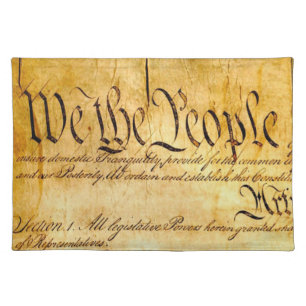 We the People
insure domestic Tranquility, provide for the common d
and our Posterity, do ordain and establish this Constit
Arti
Section 1. All legislative Powers herein granted sha
of Representatives.